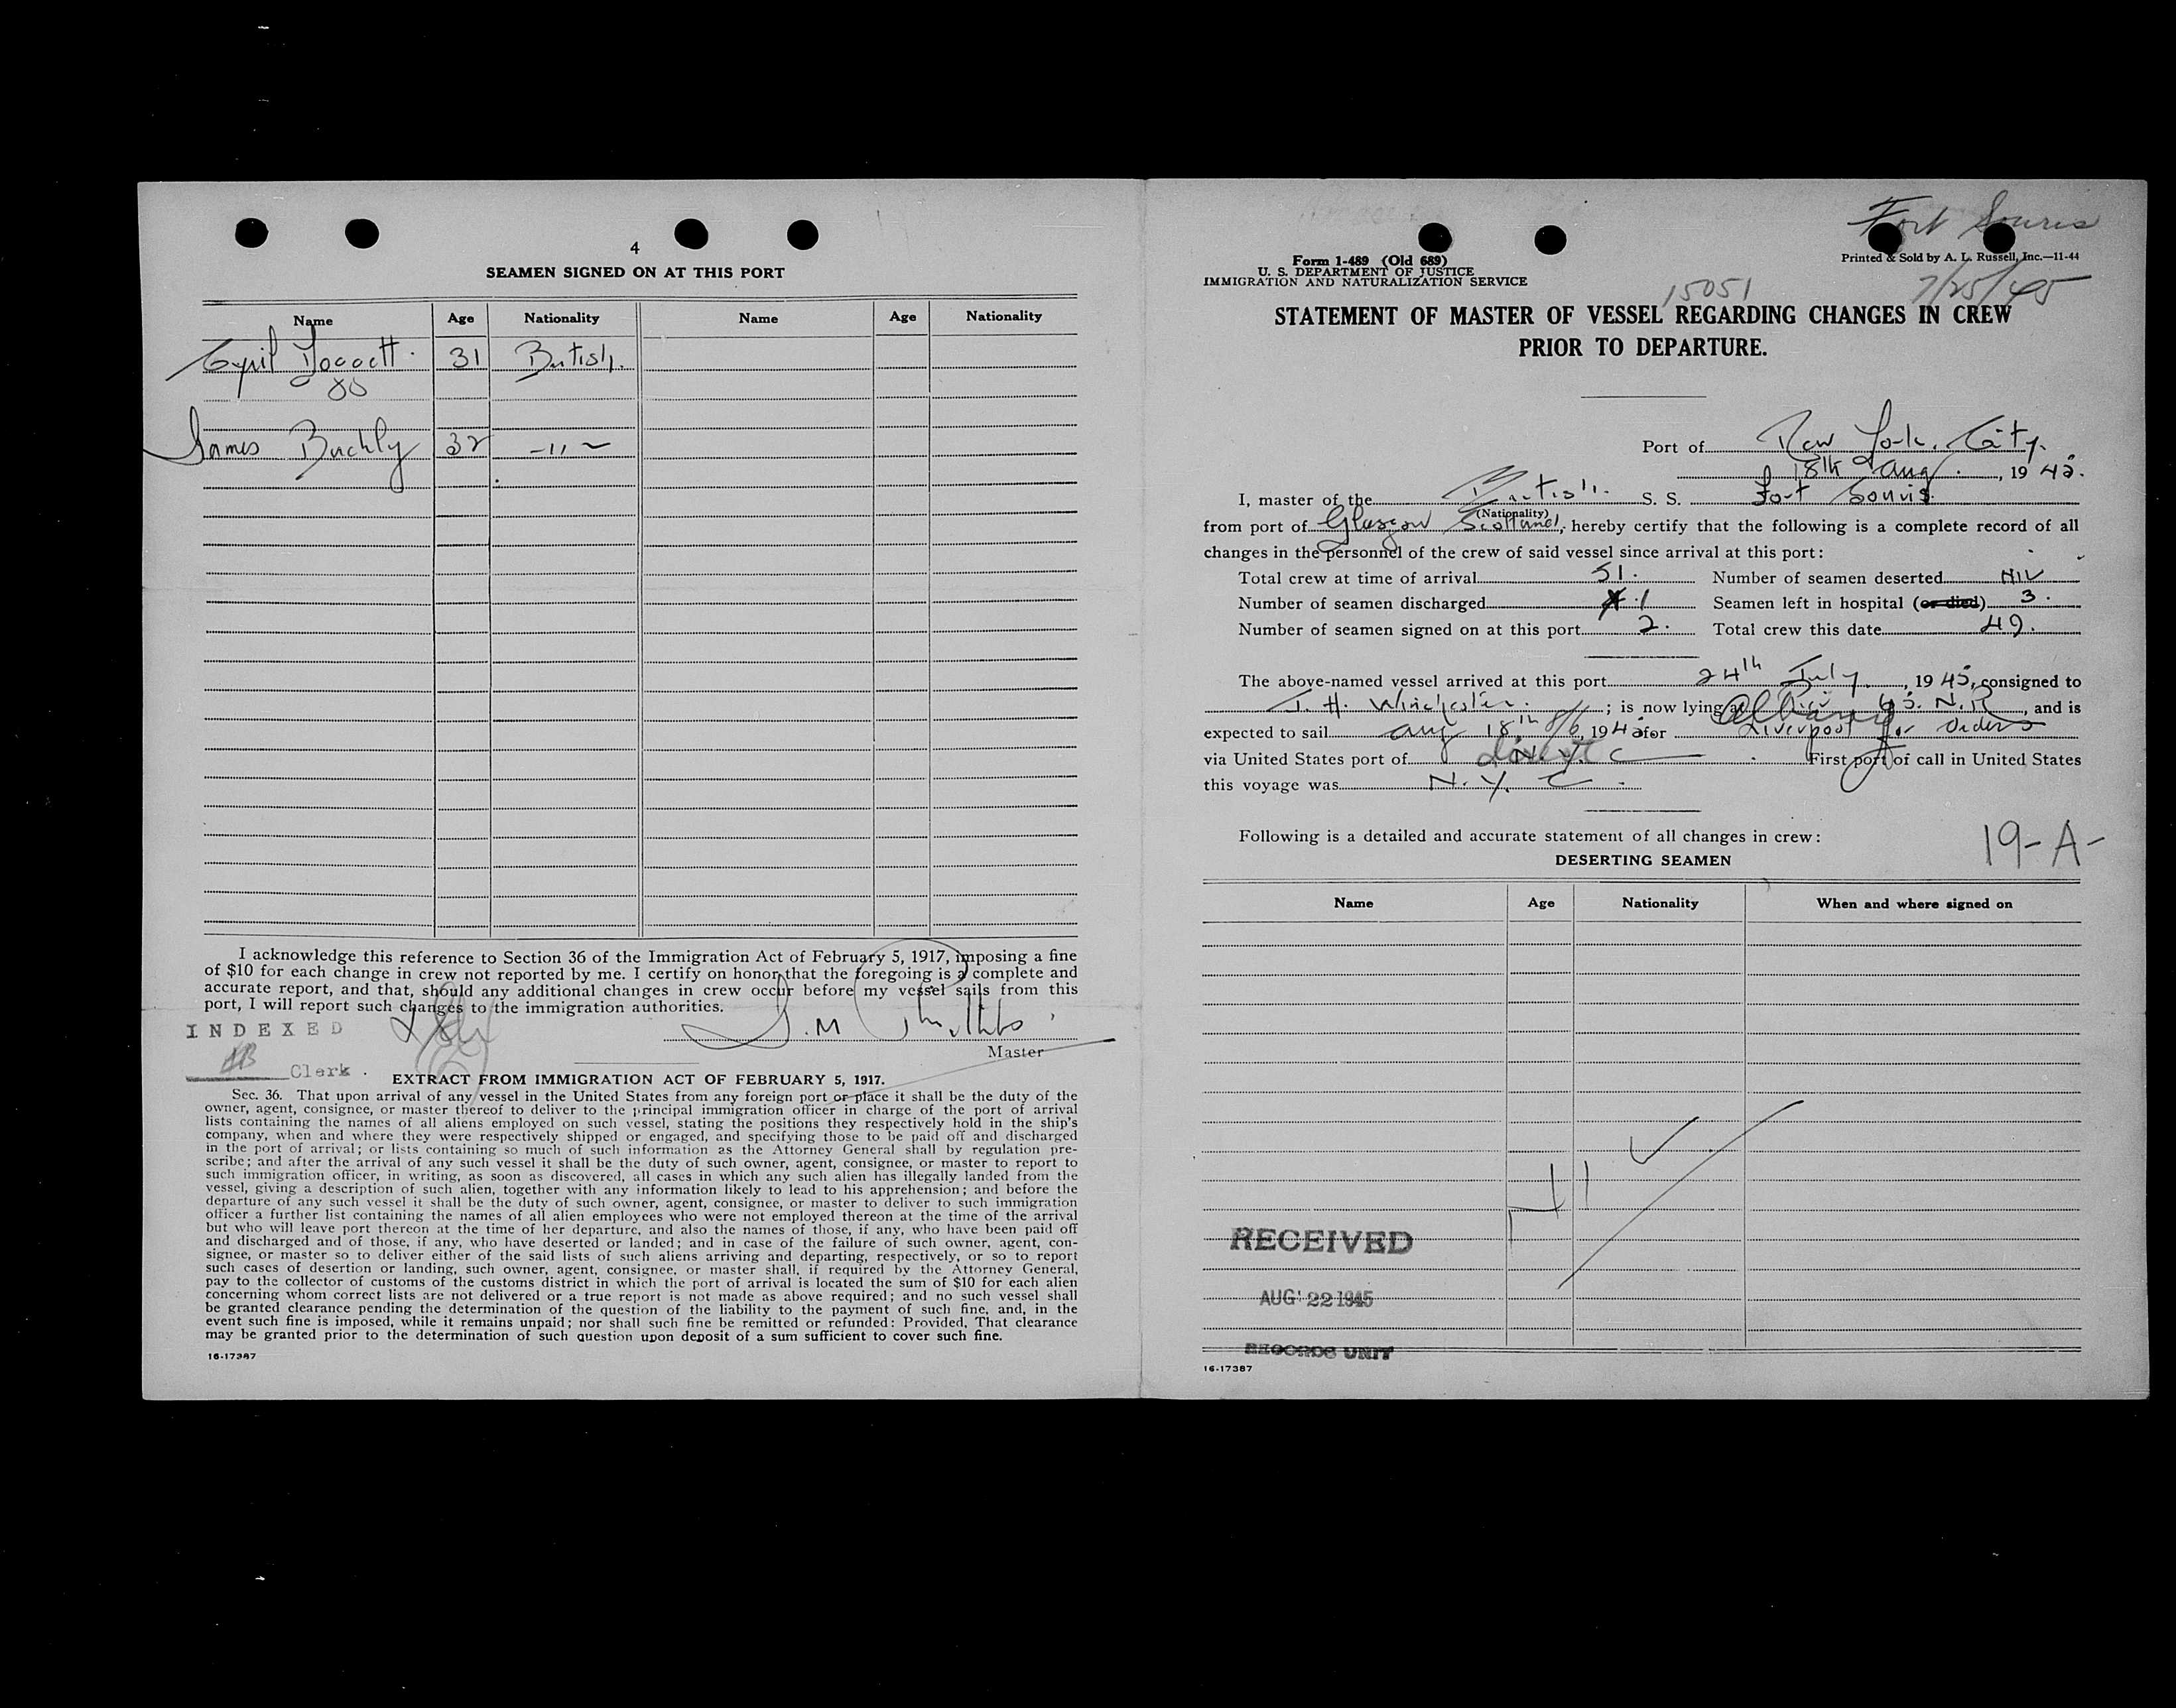 4
SEAMEN SIGNED ON AT THIS PORT
Name Age Nationality Name Age Nationality
Cyril Doggett. 31 British.
gg
James Buckly 32 -,,-
I acknowledge this reference to Section 36 of the Immigration Act of February 5, 1917, imposing a fine
of $10 for each change in crew not reported by me. I certify on honor that the foregoing is a complete and
accurate report, and that, should any additional changes in crew occur before my vessel sails from this
port, I will report such changes to the immigration authorities.
INDEXED
Master
Clerk.
EXTRACT FROM IMMIGRATION ACT OF FEBRUARY 5, 1917.
Sec. 36. That upon arrival of any vessel in the United States from any foreign port or place it shall be the duty of the
owner, agent, consignee, or master thereof to deliver to the principal immigration officer in charge of the port of arrival
lists containing the names of all aliens employed on such vessel, stating the positions they respectively hold in the ship's
company, when and where they were respectively shipped or engaged, and specifying those to be paid off and discharged
in the port of arrival; or lists containing so much of such information as the Attorney General shall by regulation pre-
scribe; and after the arrival of any such vessel it shall be the duty of such owner, agent, consignee, or master to report to
such immigration officer, in writing, as soon as discovered, all cases in which any such alien has illegally landed from the
vessel, giving a description of such alien, together with any information likely to lead to his apprehension; and before the
departure of any such vessel it shall be the duty of such owner, agent, consignee, or master to deliver to such immigration
officer a further list containing the names of all alien employees who were not employed thereon at the time of the arrival
but who will leave port thereon at the time of her departure, and also the names of those, if any, who have been paid off
and discharged and of those, if any, who have deserted or landed; and in case of the failure of such owner, agent, con-
signee, or master so to deliver either of the said lists of such aliens arriving and departing, respectively, or so to report
such cases of desertion or landing, such owner, agent, consignee, or master shall, if required by the Attorney General,
pay to the collector of customs of the customs district in which the port of arrival is located the sum of $10 for each alien
concerning whom correct lists are not delivered or a true report is not made as above required; and no such vessel shall
be granted clearance pending the determination of the question of the liability to the payment of such fine, and, in the
event such fine is imposed, while it remains unpaid; nor shall such fine be remitted or refunded: Provided, That clearance
may be granted prior to the determination of such question upon deposit of a sum sufficient to cover such fine.
16-17387
Fort Souris
Form 1-489 (Old 689)
U. S. DEPARTMENT OF JUSTICE
IMMIGRATION AND NATURALIZATION SERVICE
Printed & Sold by A. L. Russell, Inc.—11-44
15051 7/25/45
STATEMENT OF MASTER OF VESSEL REGARDING CHANGES IN CREW
PRIOR TO DEPARTURE.
Port of New York. City.
18th Aug., 1945.
I, master of the British. S. S. Fort Souris
(Nationality)
from port of Glasgow Scotland, hereby certify that the following is a complete record of all
changes in the personnel of the crew of said vessel since arrival at this port:
Total crew at time of arrival 51. Number of seamen deserted NIL
Number of seamen discharged 1 Seamen left in hospital (or died) 3.
Number of seamen signed on at this port 2. Total crew this date 49.
The above-named vessel arrived at this port 24th July, 1945, consigned to
T. H. Winchester.; is now lying at Albany N.R, and is
expected to sail Aug 18th, 1945 for Liverpool for Orders
via United States port of N.Y.C First port of call in United States
this voyage was N.Y.C.
Following is a detailed and accurate statement of all changes in crew:
19-A-
DESERTING SEAMEN
Name Age Nationality When and where signed on
RECEIVED
AUG 22 1945
RECORDS UNIT
16-17387